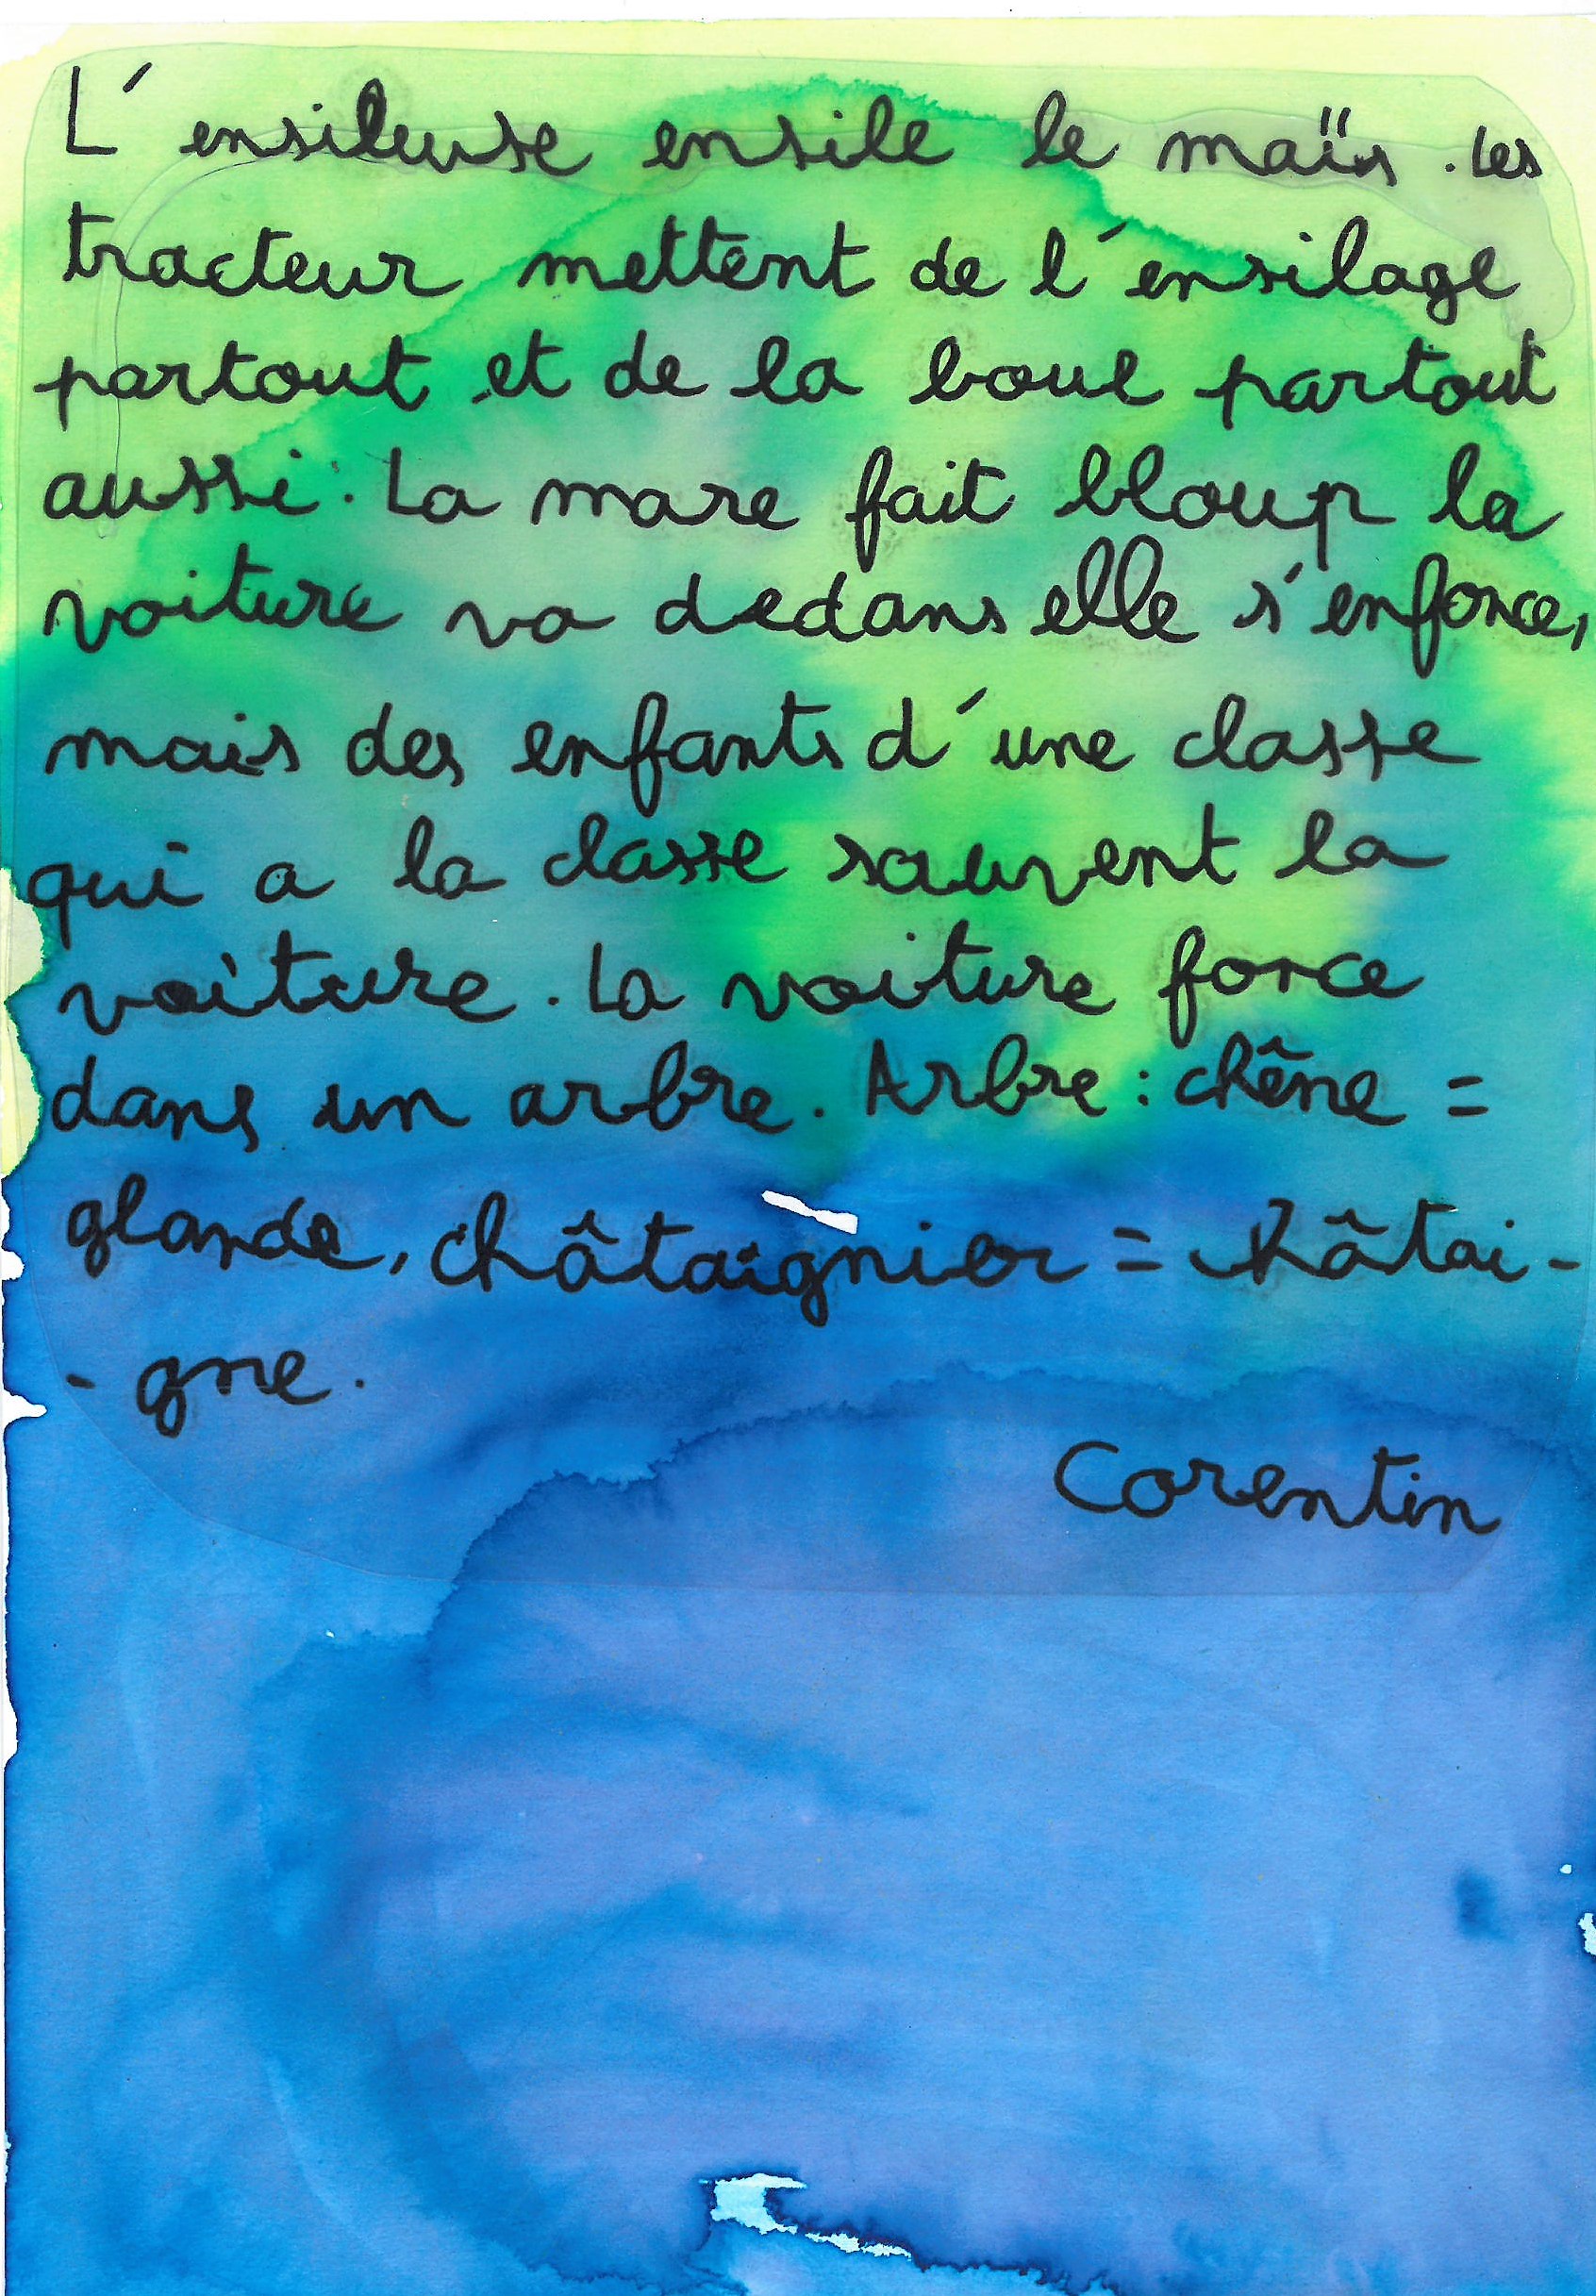 L'ensileuse ensile le maïs. Les
tracteur mettent de l'ensilage
partout et de la boue partout
aussi. La mare fait bloup la
voiture va dedans elle s'enfonce,
mais des enfants d'une classe
qui a la classe sauvent la
voiture. La voiture fonce
dans un arbre. Arbre : chêne =
glande, châtaignier = châtai-
-gne.
Corentin